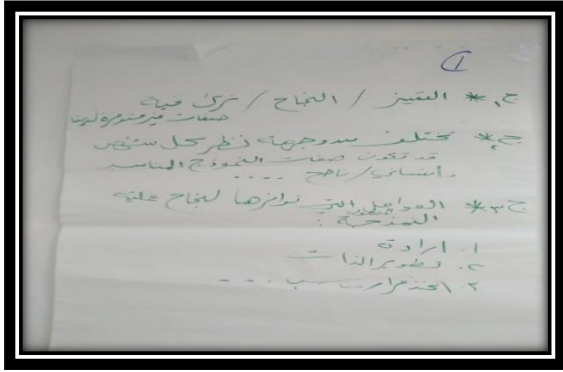 ١
ج١* التميز / النجاح / نرى فيه
صفات غير متوفرة لدينا
ج٢* تختلف من وجهة نظر كل شخص
قد تكون صفات النموذج المناسب
إنساني / ناجح ....
ج٣* العوامل التي توافرها لنجاح عملية
النمذجة :
١. إرادة
٢. تطوير الذات
٣. اتخاذ قرار مناسب ...